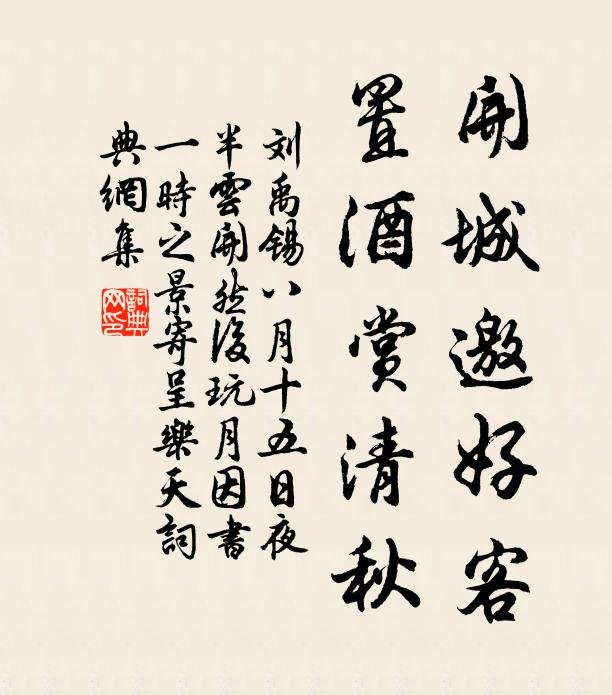 開城邀好客
置酒賞清秋
刘禹锡八月十五日夜
半雲開然後玩月因書
一時之景寄呈樂天詞
典網集
詞典网印